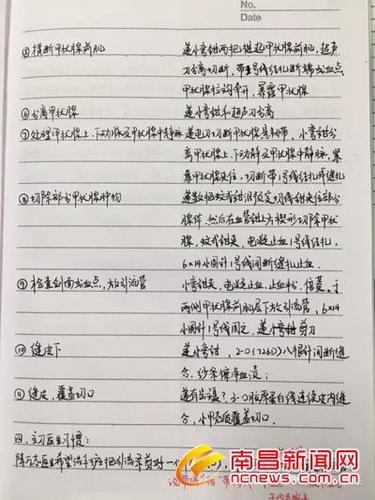 No.
Date
⑤横断甲状腺前肌 递小弯钳两把提起甲状腺前肌,超声
刀分离切断,带1号线结扎断端出血点
甲状腺拉钩牵开,暴露甲状腺
⑥分离甲状腺 递小弯钳和超声刀分离
⑦处理甲状腺上、下动脉及甲状腺中静脉 递电刀切断甲状腺悬韧带,小弯钳分
离甲状腺上、下动静及甲状腺中静脉,
甲状腺夹住,切断带1号线结扎或缝扎
⑧切除部分甲状腺肿物 递数把蚊式钳沿预定切线钳夹住部分
腺体,然后在血管钳上方楔形切除甲状
腺,蚊式钳夹,电凝止血1号线结扎,
6×14小圆针1号线间断缝扎止血.
⑨检查创面出血点,放引流管 小弯钳夹,电凝止血,止血,
两侧甲状腺前肌层下放引流管,6×14
小圆针1号线固定,递小弯钳剪刀
⑩缝皮下 递小弯钳,2-0八根针间断缝
合,纱条擦净血渍;
⑪缝皮,覆盖切口 3-0线连续皮内缝
合,小甲包覆盖切口.
四、主刀医生习惯:
陈医生希望洗手护士把引流条剪
南昌新闻网
www.ncnews.com.cn